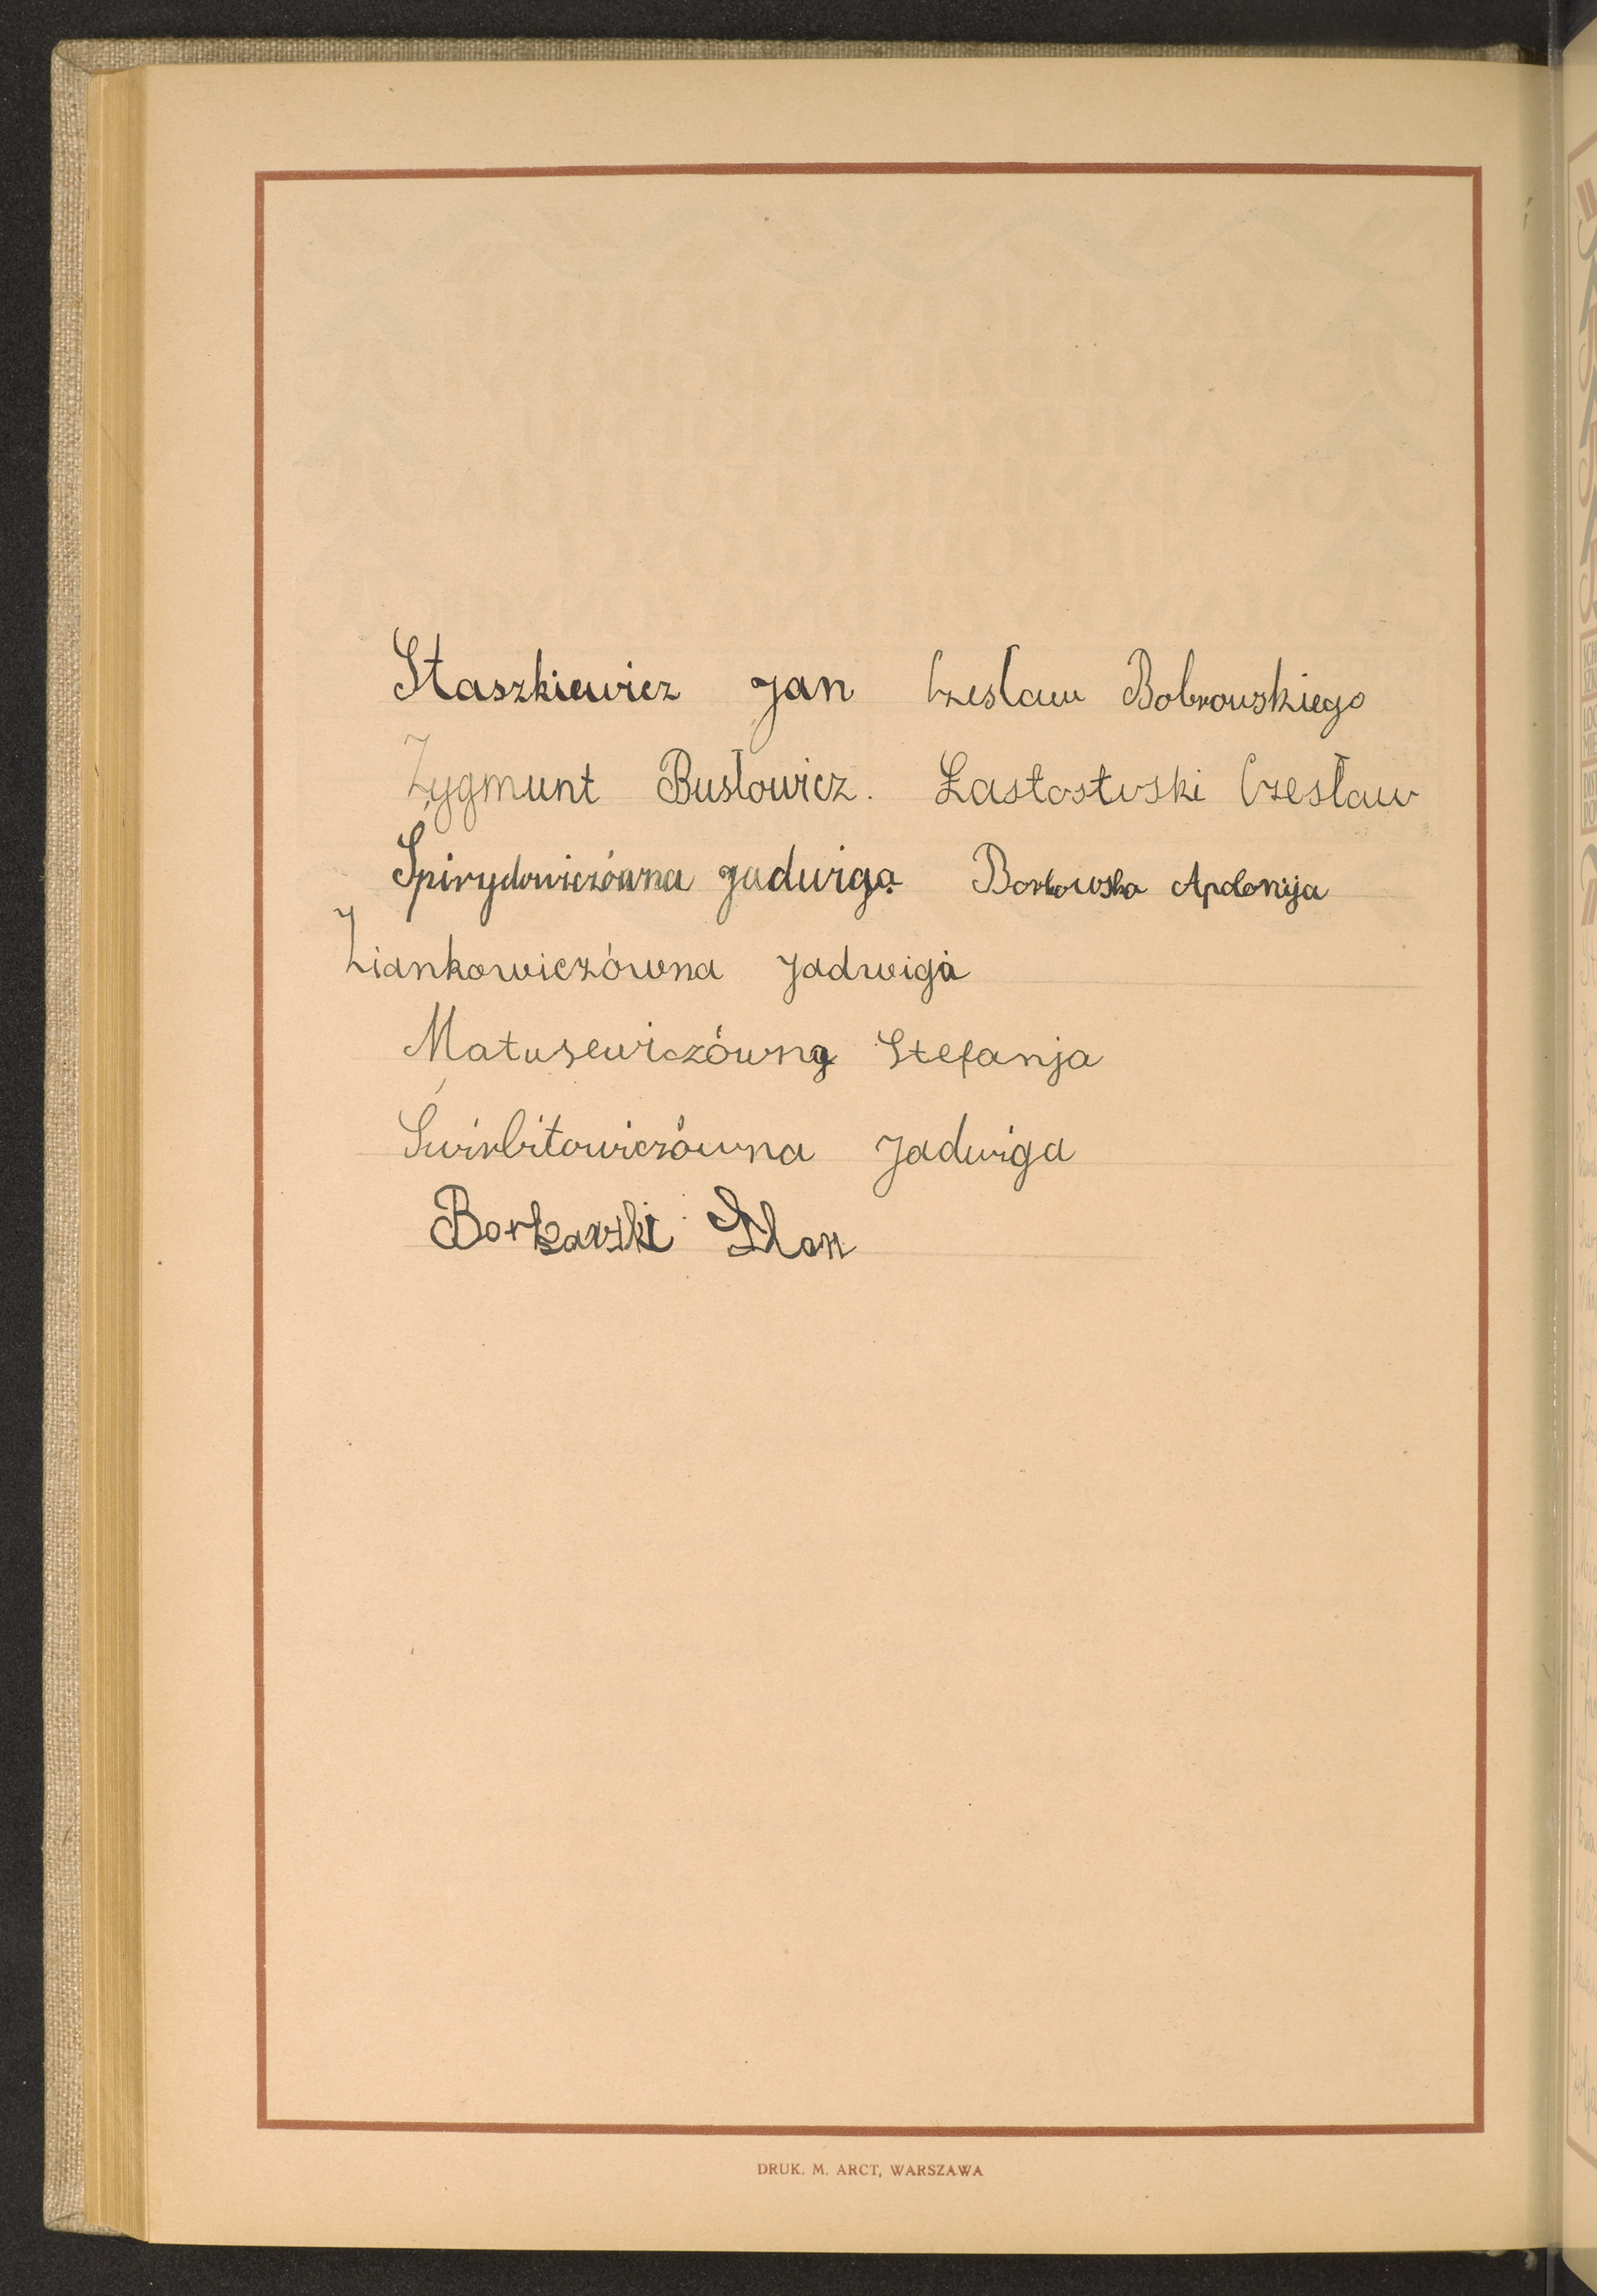 Staszkiewicz Jan Czeslaw Bobrowskiego
Zygmunt Busłowicz. Łastostwski Czesław
Spirydowiczówna Jadwiga Borkowska Apolonija
Ziankowiczówna Jadwiga
Matusewiczówna Stefanja
Świrbitowiczówna Jadwiga
Borkowski
DRUK. M. ARCT, WARSZAWA